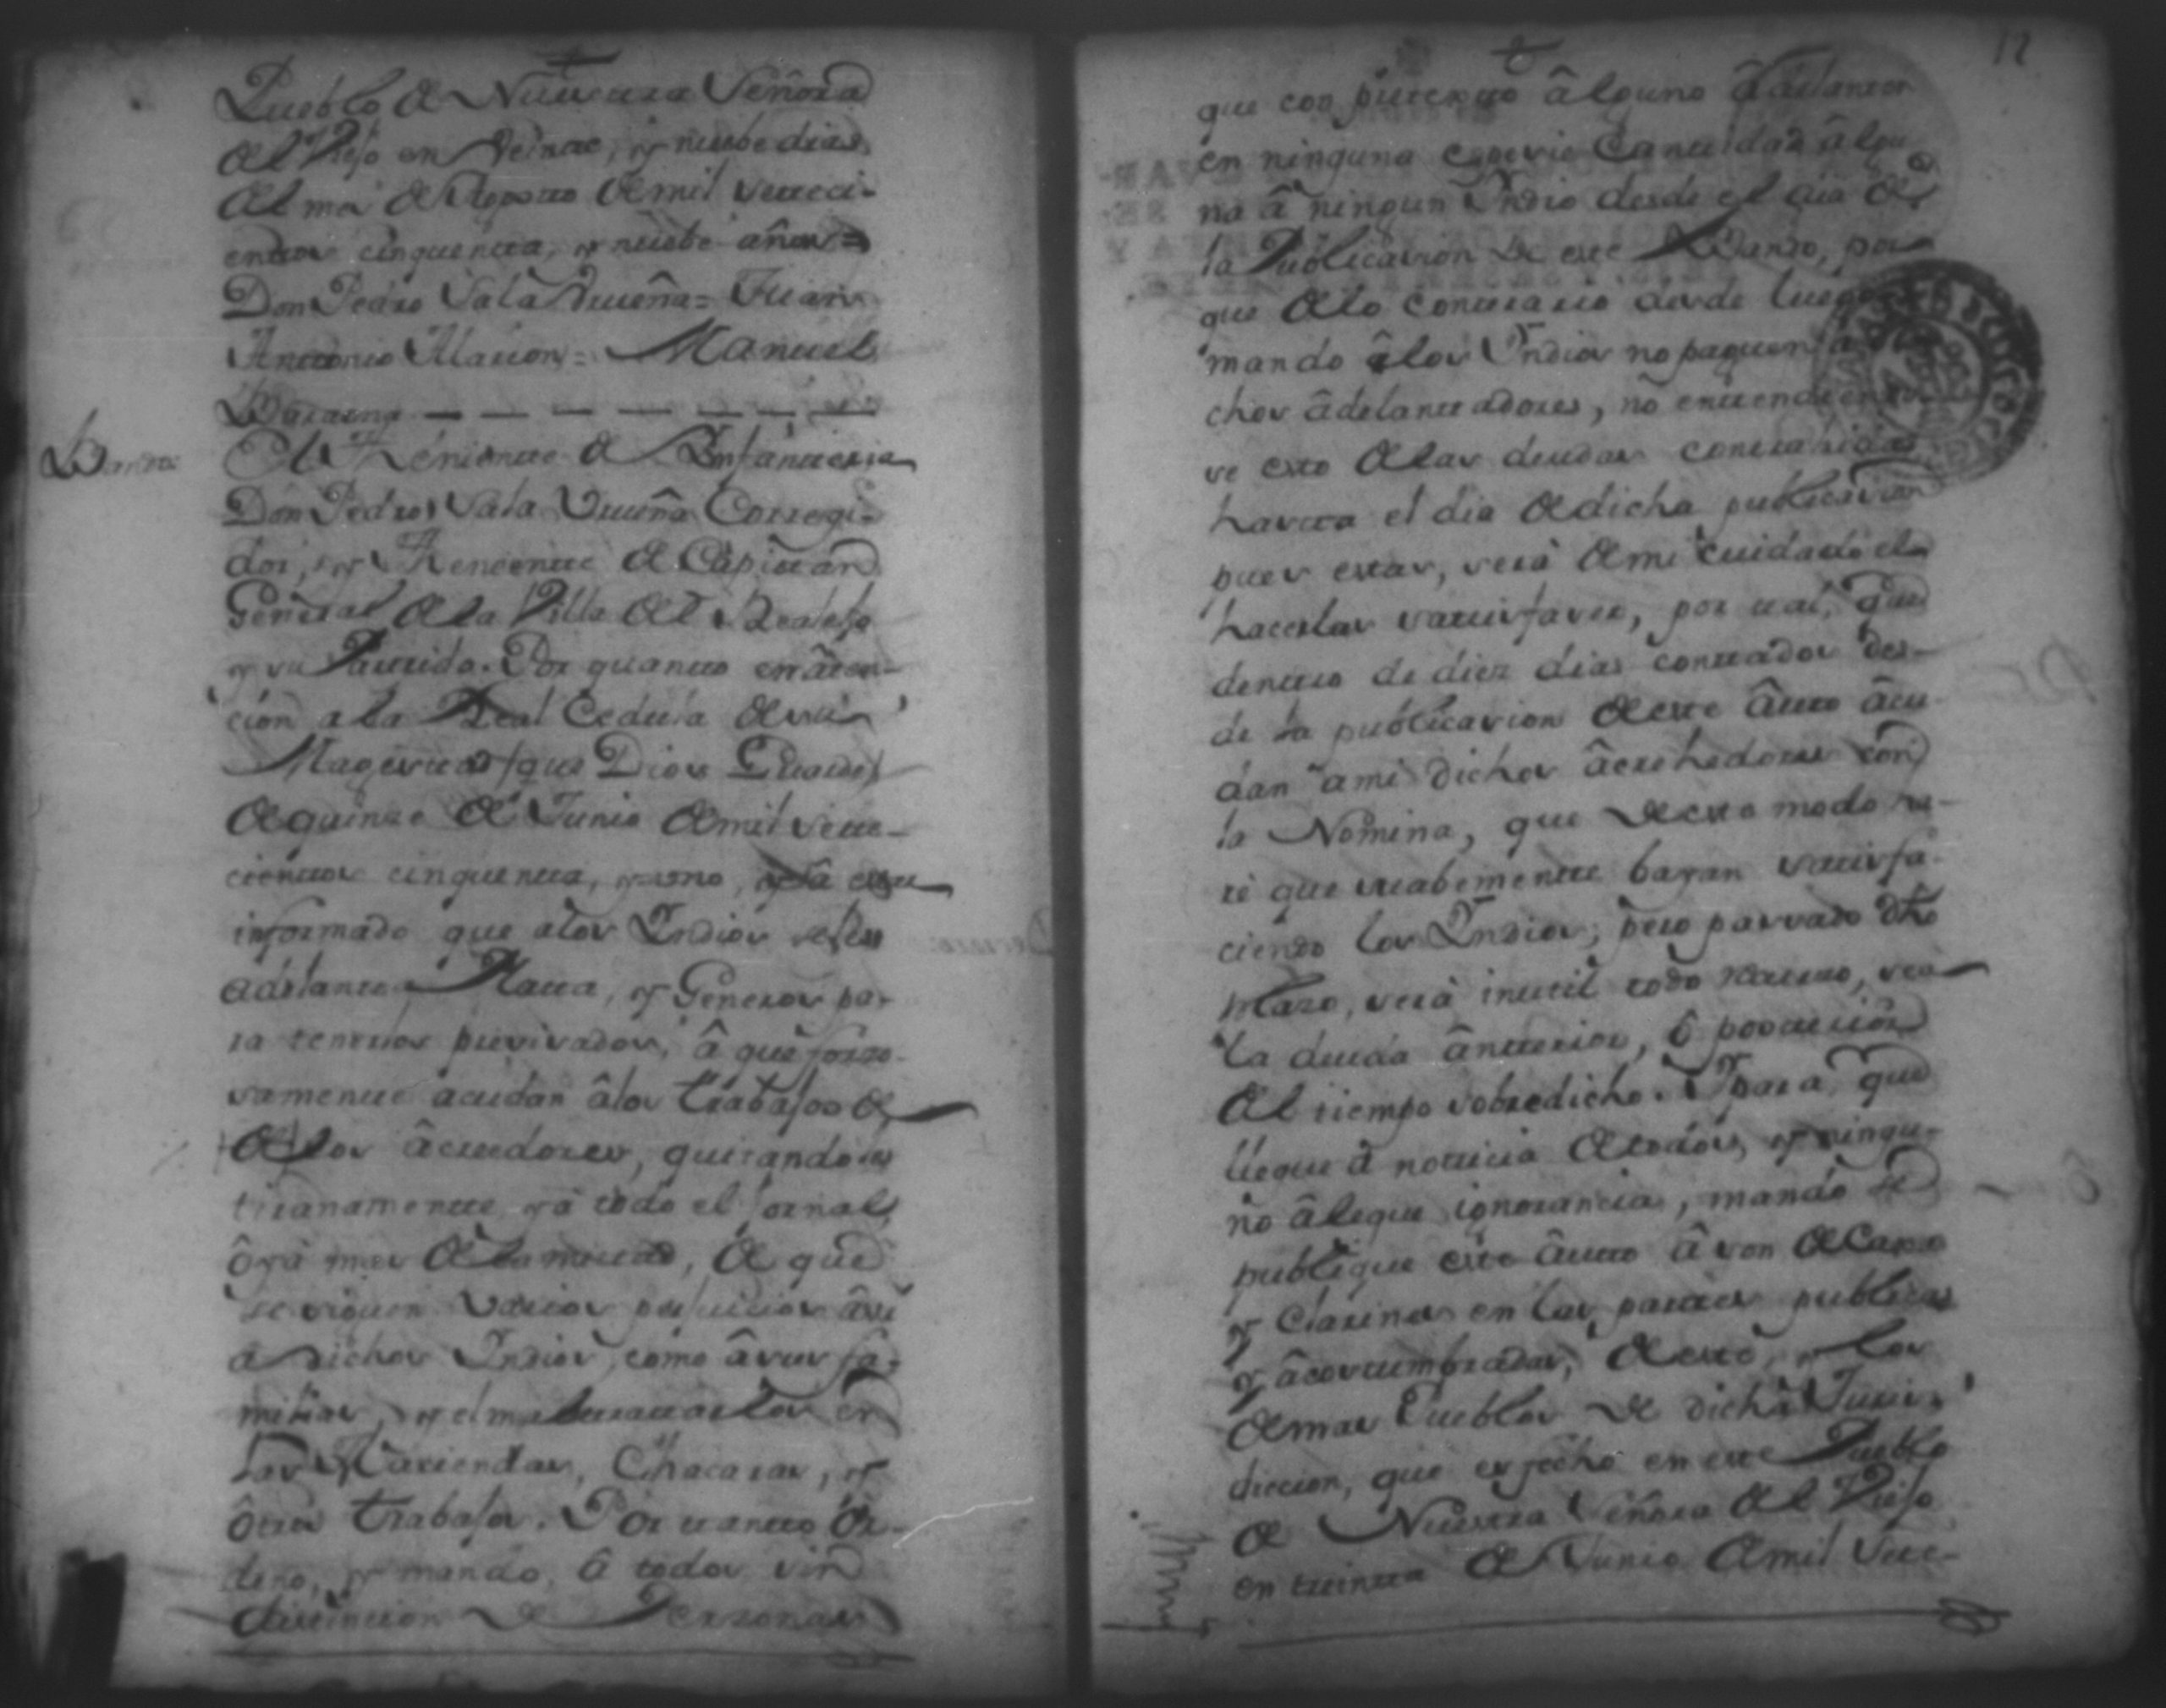 Pueblo de Nuestra Señora
del Viejo en veinte, y nuebe dias
del mes de Agosto de mil seteci-
entos cinquenta, y nuebe años =
Don Pedro Sala Vicuña = Juan
Antonio Alarcon = Manuel
Barzena
Bando
El Theniente de Infanteria
Don Pedro Sala Vicuña Corregi-
dor, y Theniente de Capitan
General de la Villa del Realejo
y su Partido. Por quanto en aten-
cion a la Real Cedula de su
Magestad (que Dios Guarde)
de quinze de Junio de mil sete-
cientos cinquenta, y uno,
informado que a los Indios se les
adelanta Plata, y Generos pa-
ra tenerlos precisados, â que forzo-
samente acudan â los trabajos de
de los âcreedores, quitandoles
tiranamente yâ todo el jornal,
ôyâ mas de la mitad, de que
se siguen varios perjuicios âsi
a dichos Indios, como â sus fa-
milias, y el mal tratarlos en
las Haciendas, Chacaras, y
ôtros trabajos. Por tanto ôr-
deno, y mando, â todos sin
distincion de Personas
12
que con pretexto âlguno âdelanten
en ninguna especie Cantidad âlgu-
na â ningun Indio desde el dia de
la Publicacion de este Bando, por
que de lo contrario desde luego
mando â los Indios no paguen â
chos âdelantadores, no entendiendo
se esto de las deudas contrahidas
hasta el dia de dicha publicacion
pues estas, será de mi cuidado el
hacerlas satisfacer, por tal, que
dentro de diez dias contados des-
de la publicacion de este âuto âcu-
dan âmi dichos âcrehedores con
la Nomina, que de este modo ha-
ré que suabemente bayan satisfa-
ciendo los Indios; pero passado dho
plazo, será inutil todo recurso, sea
la deuda ânterior, ô posterior
del tiempo sobredicho. Y para que
llegue â noticia de todos, y ningu-
no âlegue ignorancia, mando se
publique este âuto â son de Caxas
y Clarines en las partes publicas
y âcostumbradas, de este, y los
demas Pueblos de dicha Juris-
diccion, que es fecho en este Pueblo
de Nuestra Señora del Viejo
en treinta de Junio de mil sete-